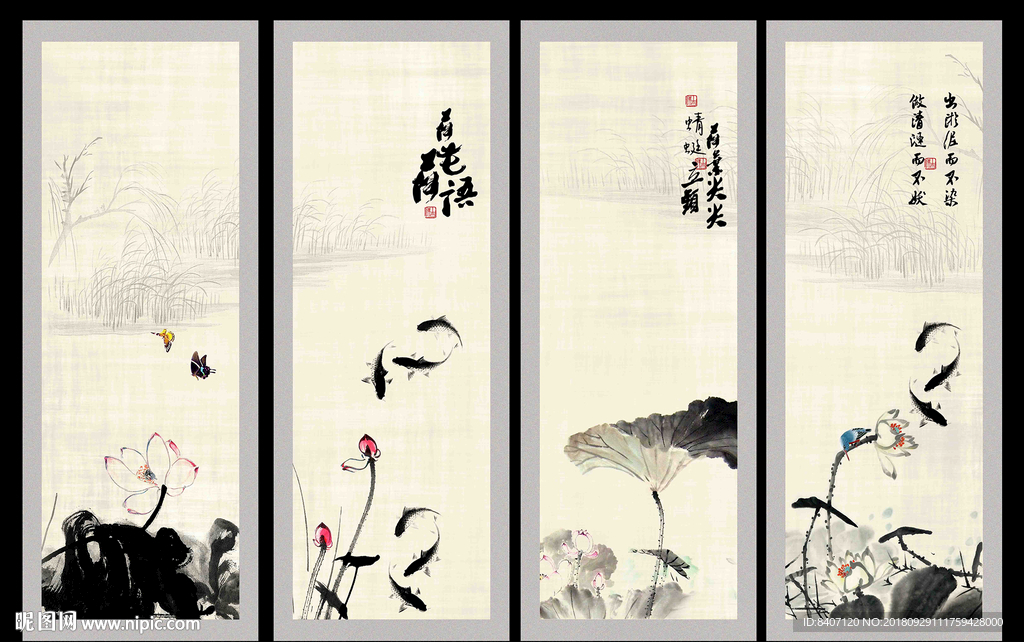 荷花
荷語
荷葉尖尖
蜻蜓立頭
出淤泥而不染
做清漣而不妖
昵图网 www.nipic.com
ID:8407120 NO:20180929111759428000